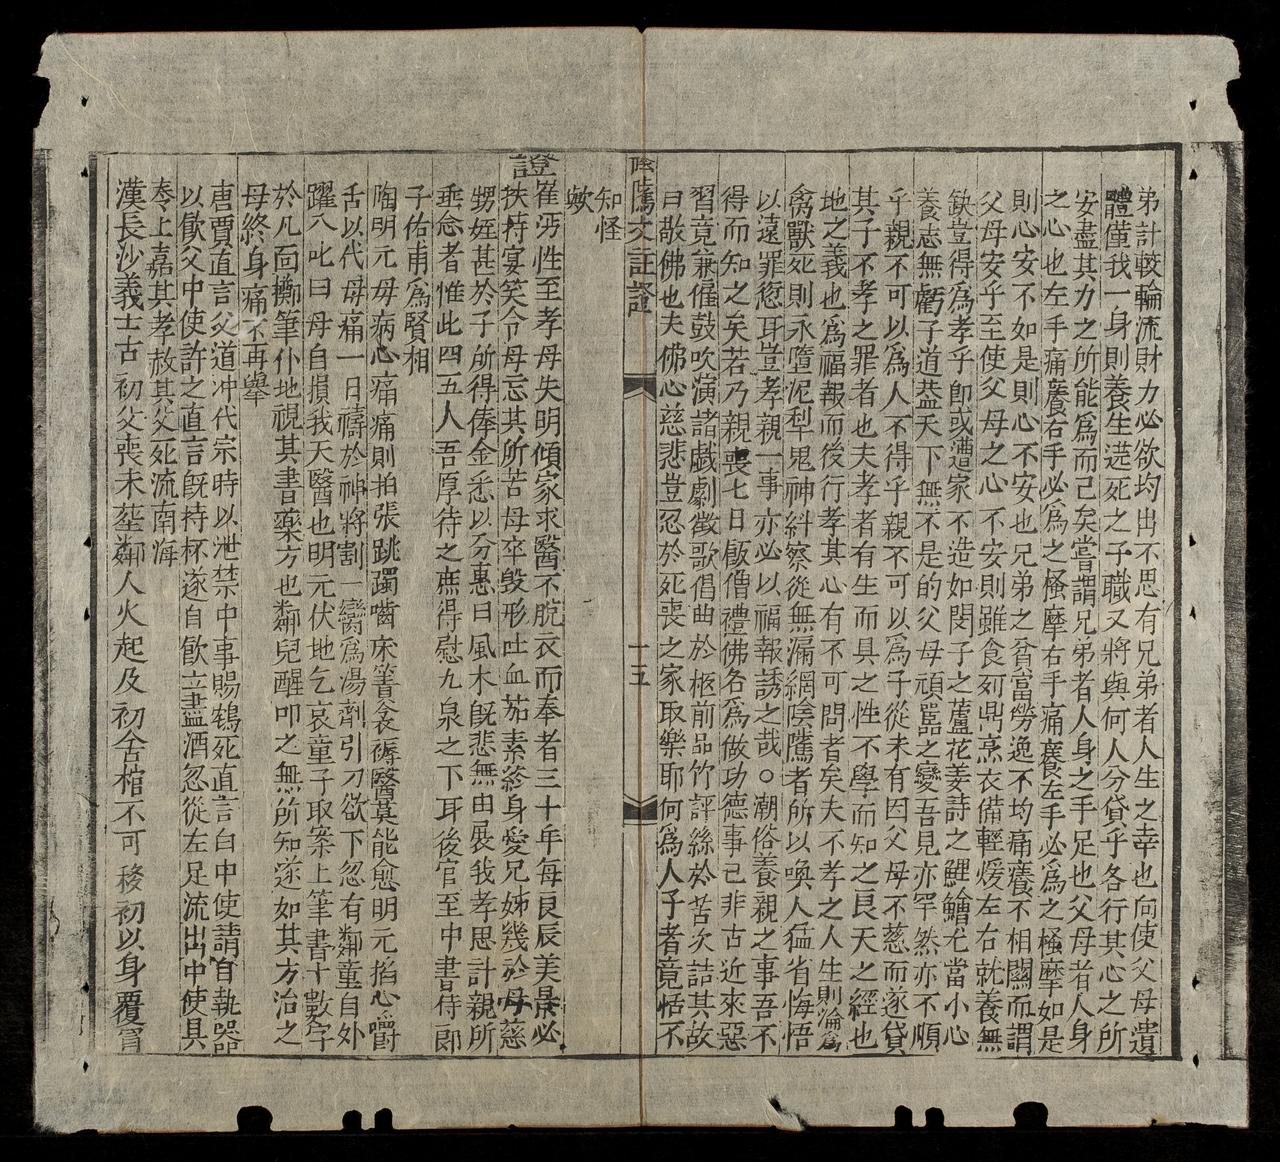 弟計較輪流財力必欲均出不思有兄弟者人生之幸也向使父母遺
體僅我一身則養生送死之子職又將與何人分貸乎各行其心之所
安盡其力之所能為而已矣嘗謂兄弟者人身之手足也父母者人身
之心也左手痛癢右手必為之搔摩右手痛癢左手必為之搔摩如是
則心安不如是則心不安也兄弟之貧富勞逸不均痛癢不相關而謂
父母安乎至使父母之心不安則雖食列鼎烹衣備輕煖左右就養無
缺豈得為孝乎即或遭家不造如閔子之蘆花姜詩之鯉鱠尤當小心
養志無虧子道葢天下無不是的父母頑嚚之變吾見亦罕然亦不順
乎親不可以為人不得乎親不可以為子從未有因父母不慈而遂貸
其子不孝之罪者也夫孝者有生而具之性不學而知之良天之經也
地之義也為福報而後行孝其心有不可問者矣夫不孝之人生則淪為
禽獸死則永墮泥犁鬼神糾察從無漏網陰騭者所以喚人猛省悔悟
以遠罪愆耳豈孝親一事亦必以福報誘之哉○潮俗養親之事吾不
得而知之矣若乃親喪七日飯僧禮佛名為做功德事已非古近來惡
習竟兼僱鼓吹演諸戯劇徵歌倡曲於柩前品竹評絲於苦次詰其故
曰敬佛也夫佛心慈悲豈忍於死喪之家取樂耶何為人子者竟恬不
陰騭文註證
十五
知怪
歟
證崔沔性至孝母失明傾家求醫不脫衣而奉者三十年每良辰美景必
扶持宴笑令母忘其所苦母卒毀形吐血茹素終身愛兄姊幾於母慈
甥姪甚於子所得俸金悉以分惠曰風木旣悲無由展我孝思計親所
垂念者惟此四五人吾厚待之庶得慰九泉之下耳後官至中書侍郎
子佑甫為賢相
陶明元母病心痛痛則拍張跳躅嚙床簀衾褥醫莫能愈明元掐心嚼
舌以代母痛一日禱於神將割一臠為湯劑引刀欲下忽有鄰童自外
躍入叱曰母自損我天醫也明元伏地乞哀童子取案上筆書十數字
於几面擲筆仆地視其書藥方也鄰兒醒叩之無所知遂如其方治之
母終身痛不再舉
唐賈直言父道冲代宗時以泄禁中事賜鴆死直言白中使請自執器
以飲父中使許之直言旣持杯遂自飲立盡酒忽從左足流出中使具
奏上嘉其孝赦其父死流南海
漢長沙義士古初父喪未塟鄰人火起及初舍棺不可移初以身覆冒